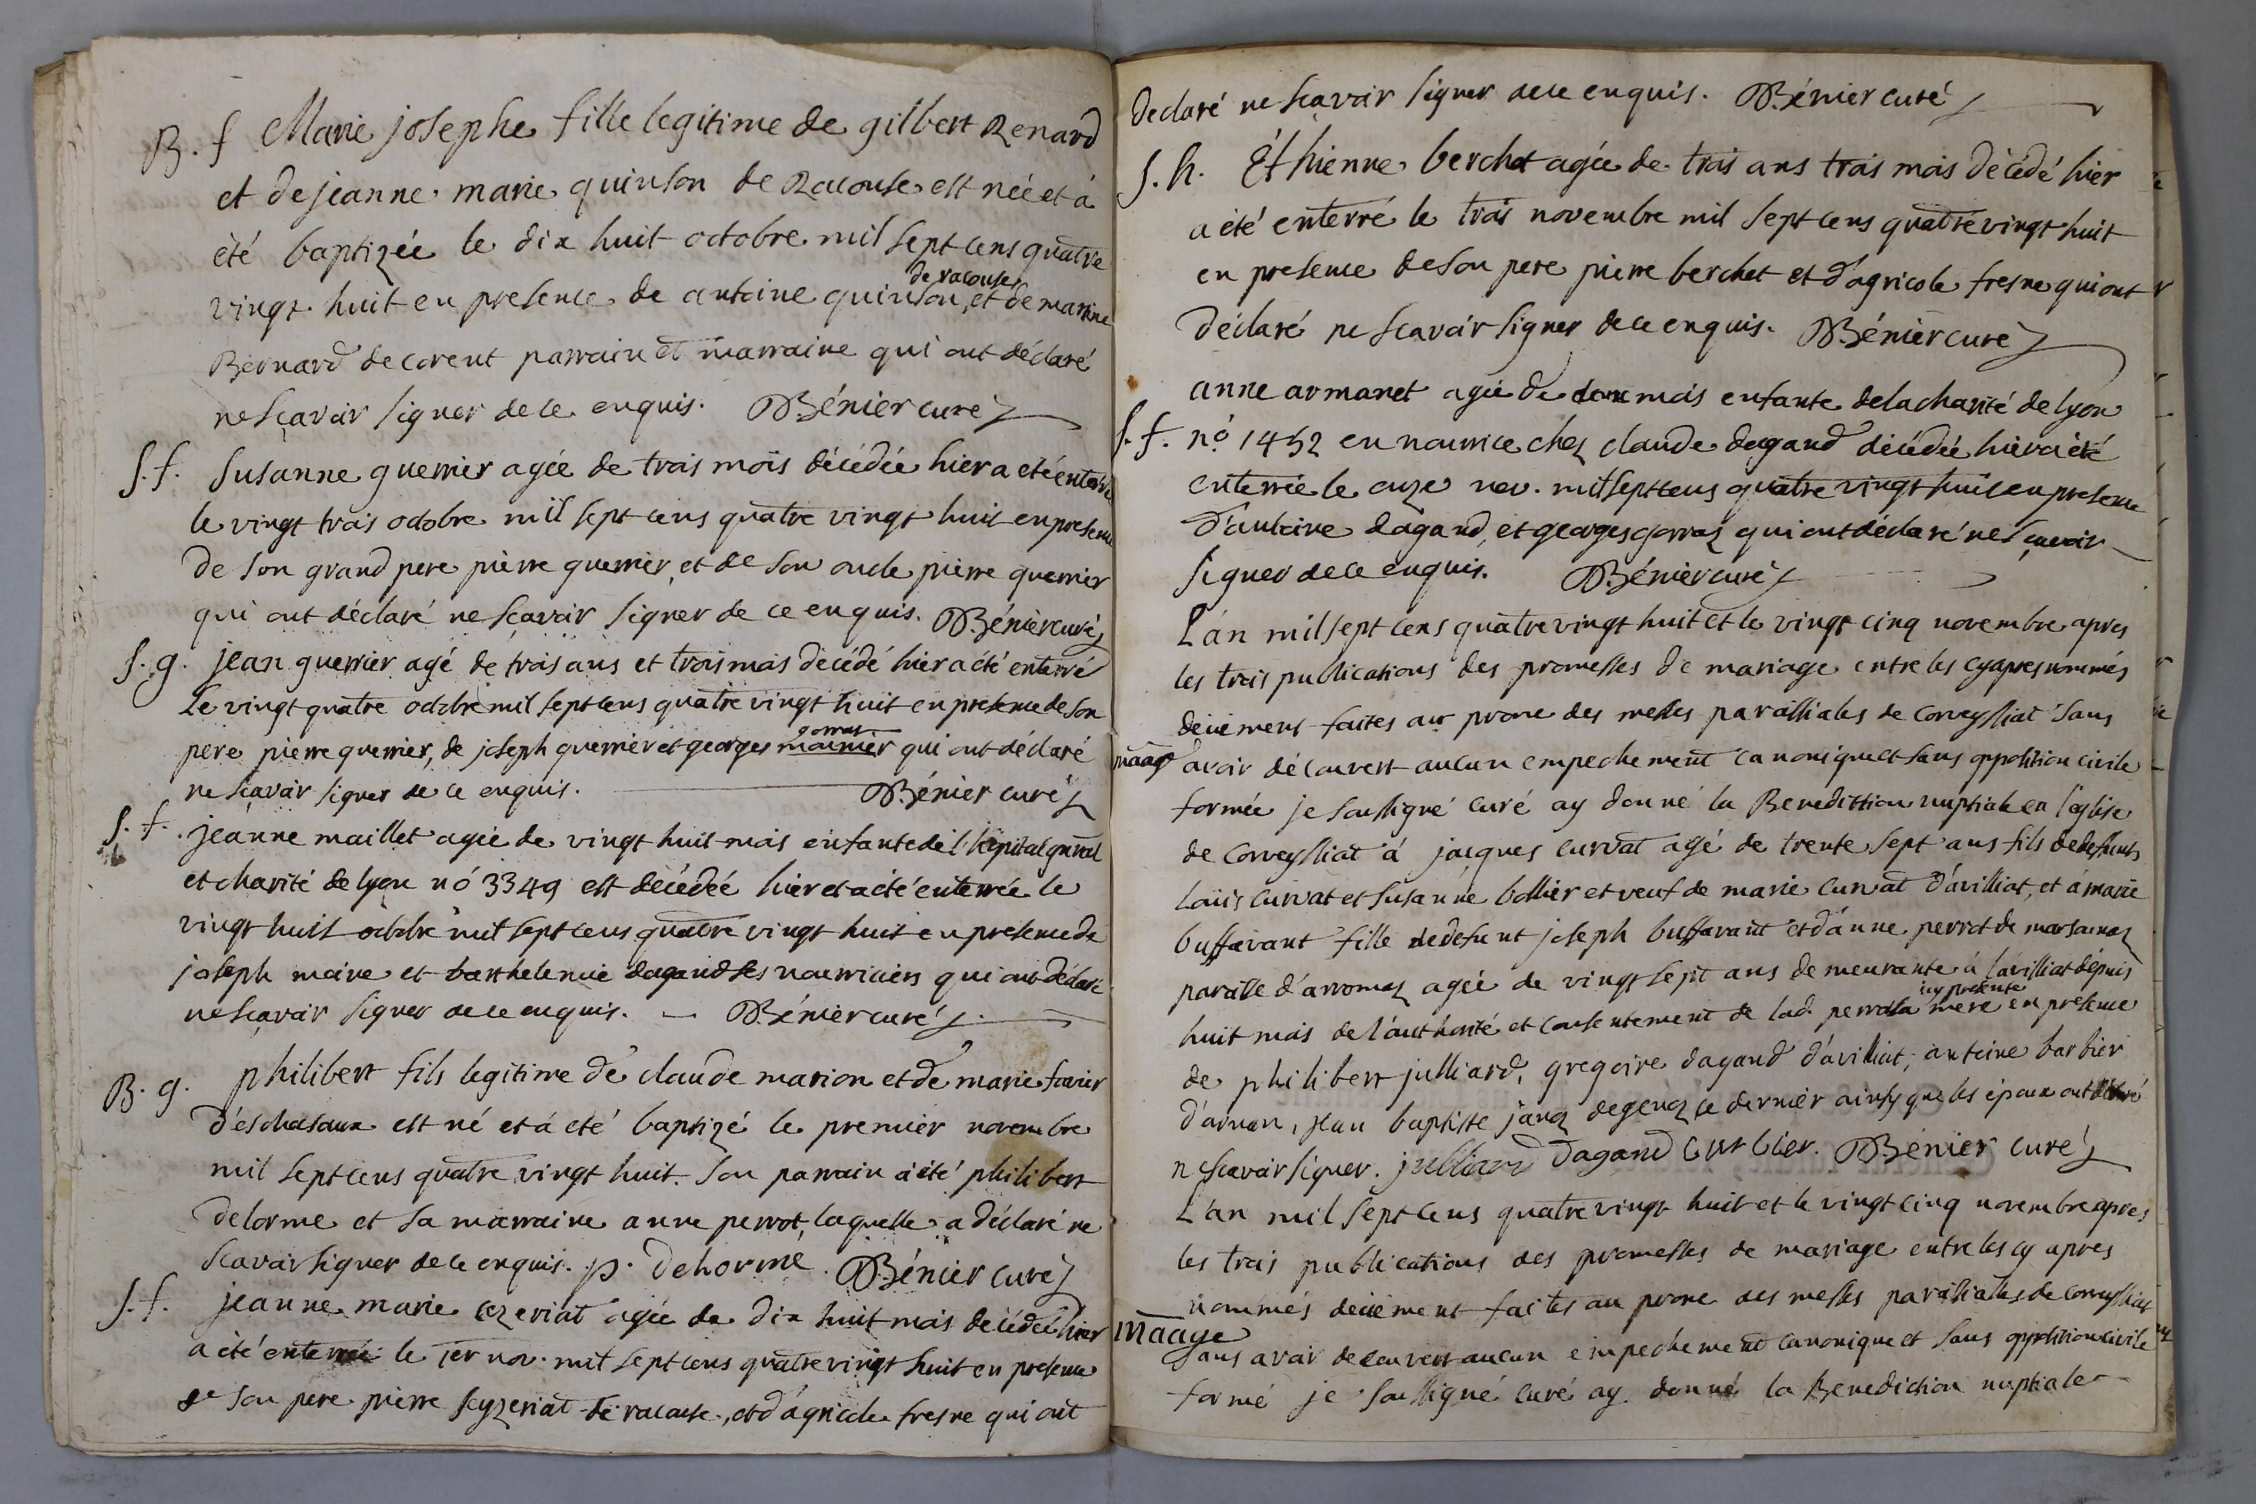 B. f Marie josephe fille legitime de gilbert Renard
et de jeanne marie quinson de Racouse est née et à
été baptizée le dix huit octobre mil sept cens quatre
vingt huit en presence de antoine quinson de racouse, et de marine
Bernard de corent parrain et marraine qui ont déclaré
ne sçavoir signer de ce enquis. Bénier curé
S. f. Susanne guerrier agée de trois mois décédée hier a eté enterrée
le vingt trois octobre mil sept cens quatre vingt huit en presence
de son grand pere pierre guerrier, et de son oncle pierre guerrier
qui ont déclaré ne sçavoir signer de ce enquis. Bénier curé
S. g. jean guerrier agé de trois ans et trois mois décédé hier a été enterré
le vingt quatre octobre mil sept cens quatre vingt huit en presence de son
pere pierre guerrier, de joseph guerrier et georges gorraz qui ont déclaré
ne sçavoir signer de ce enquis. Bénier curé
S. f. jeanne maillet agée de vingt huit mois enfante de l'hôpital gnral
et charité de lyon nó 3349 est décédée hier et a été enterrée le
vingt huit octobre mil sept cens quatre vingt huit en presence de
joseph moine et barthelemie dagand ses nourriciers qui ont déclaré
ne sçavoir signer de ce enquis. — Bénier curé
B. g. philibert fils legitime de claude marion et de marie favier
d'eschasaux est né et á eté baptizé le premier novembre
mil sept cens quatre vingt huit. Son parrain a été philibert
delorme et sa marraine anne perrot, laquelle a déclaré ne
scavoir signer de ce enquis. p. Delorme Bénier curé
S. f. jeanne marie cezeriat agée de dix huit mois décédée hier
a été enterrée le 1er nov. mil sept cens quatre vingt huit en presence
de son pere pierre seyzeriat de racouse, et d'agricole fresne qui ont
declaré ne scavoir signer de ce enquis. Bénier curé
S. h. Éthienne berchet agée de trois ans trois mois décédé hier
a été enterré le trois novembre mil sept cens quatre vingt huit
en presence de son pere pierre berchet et d'agricole fresne qui ont
déclaré ne scavoir signer de ce enquis. Bénier curé
anne armanet agée de mois enfante de la charité de lyon
S. f. nó 1452 en nourrice chez claude dagand décédée hier a été
enterrée le onze nov. mil sept cens quatre vingt huit en presence
d'antoine dagand, et georges gorraz qui ont déclaré ne sçavoir
signer de ce enquis. Bénier curé
L'an mil sept cens quatre vingt huit et le vingt cinq novembre apres
les trois publications des promesses de mariage entre les cyapres nommés
deüement faites au prone des messes paroissiales de Corveyssiat sans
maage avoir découvert aucun empechement canonique et sans opposition civile
formée je soussigné curé ay donné la Benediction nuptiale en l'église
de Corveyssiat à jacques curvat agé de trente sept ans fils de defunts
Loüis curvat et susanne bollier et veuf de marie curvat d'avilliat, et á marie
buffavant fille de defunt joseph buffavant et d'anne perrot de marsaenaz
paroisse d'arromaz agée de vingt sept ans demeurante à l'avilliat depuis
huit mois de l'authorité et consentement de lad. perrot sa mere icy presente en presence
de philibert julliard, gregoire dagand d'avilliat, antoine barbier
d'arnan, jean baptiste janez degenez ce dernier ainsy que les épaux ont déclaré
ne scavoir signer. julliard Dagand barbier. Bénier curé
L'an mil sept cens quatre vingt huit et le vingt cinq novembre apres
les trois publications des promesses de mariage entre les cy apres
nommés deüement faites au prone des messes paroissiales de corveyssiat
maage sans avoir découvert aucun empechement canonique et sans opposition civile
formé je soussigné curé ay donné la Benediction nuptiale